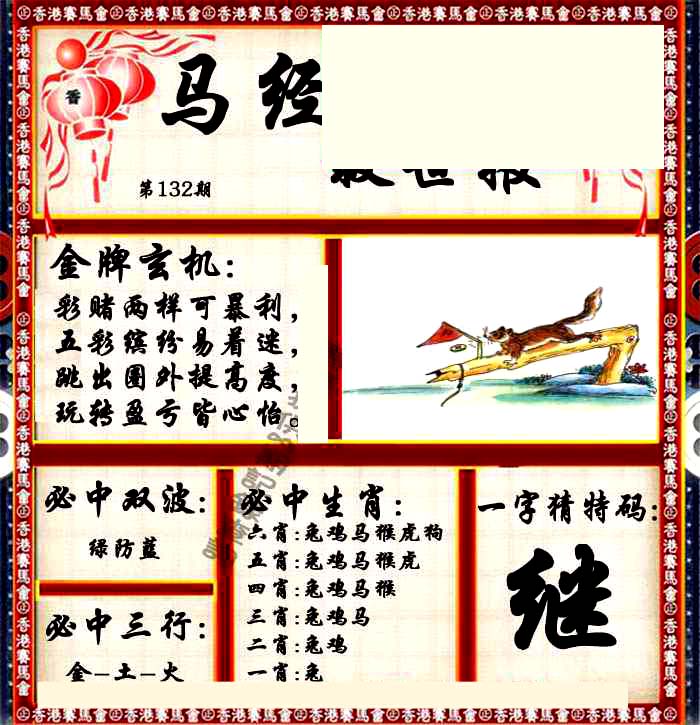 香港賽馬會 香港賽馬會 香港賽馬會 香港賽馬會 香港賽馬會 香港賽馬會 香港賽馬會
香
马经
救世报
第132期
金牌玄机:
彩赌两样可暴利,
五彩缤纷易着迷,
跳出圈外提高度,
玩转盈亏皆心怡。
必中双波:
绿防蓝
必中三行:
金-土-火
必中生肖:
六肖:兔鸡马猴虎狗
五肖:兔鸡马猴虎
四肖:兔鸡马猴
三肖:兔鸡马
二肖:兔鸡
一肖:兔
一字猜特码:
继
香港賽馬會 香港賽馬會 香港賽馬會 香港賽馬會 香港賽馬會 香港賽馬會